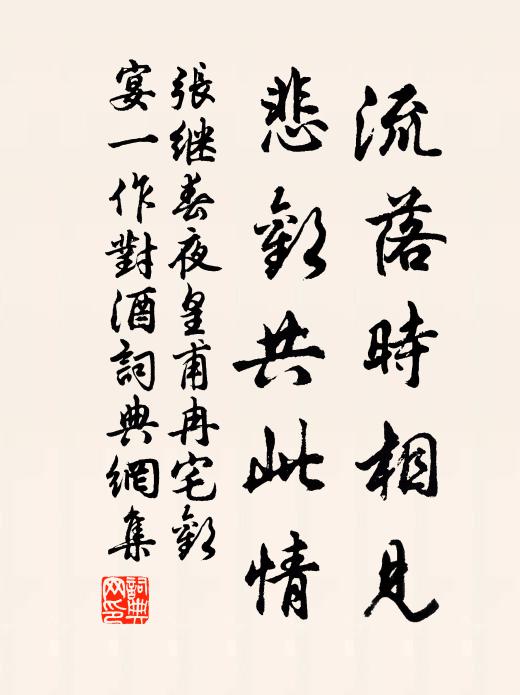 流落時相見
悲歡共此情
張继春夜皇甫冉宅歡
宴一作對酒詞典網集
詞典
网印